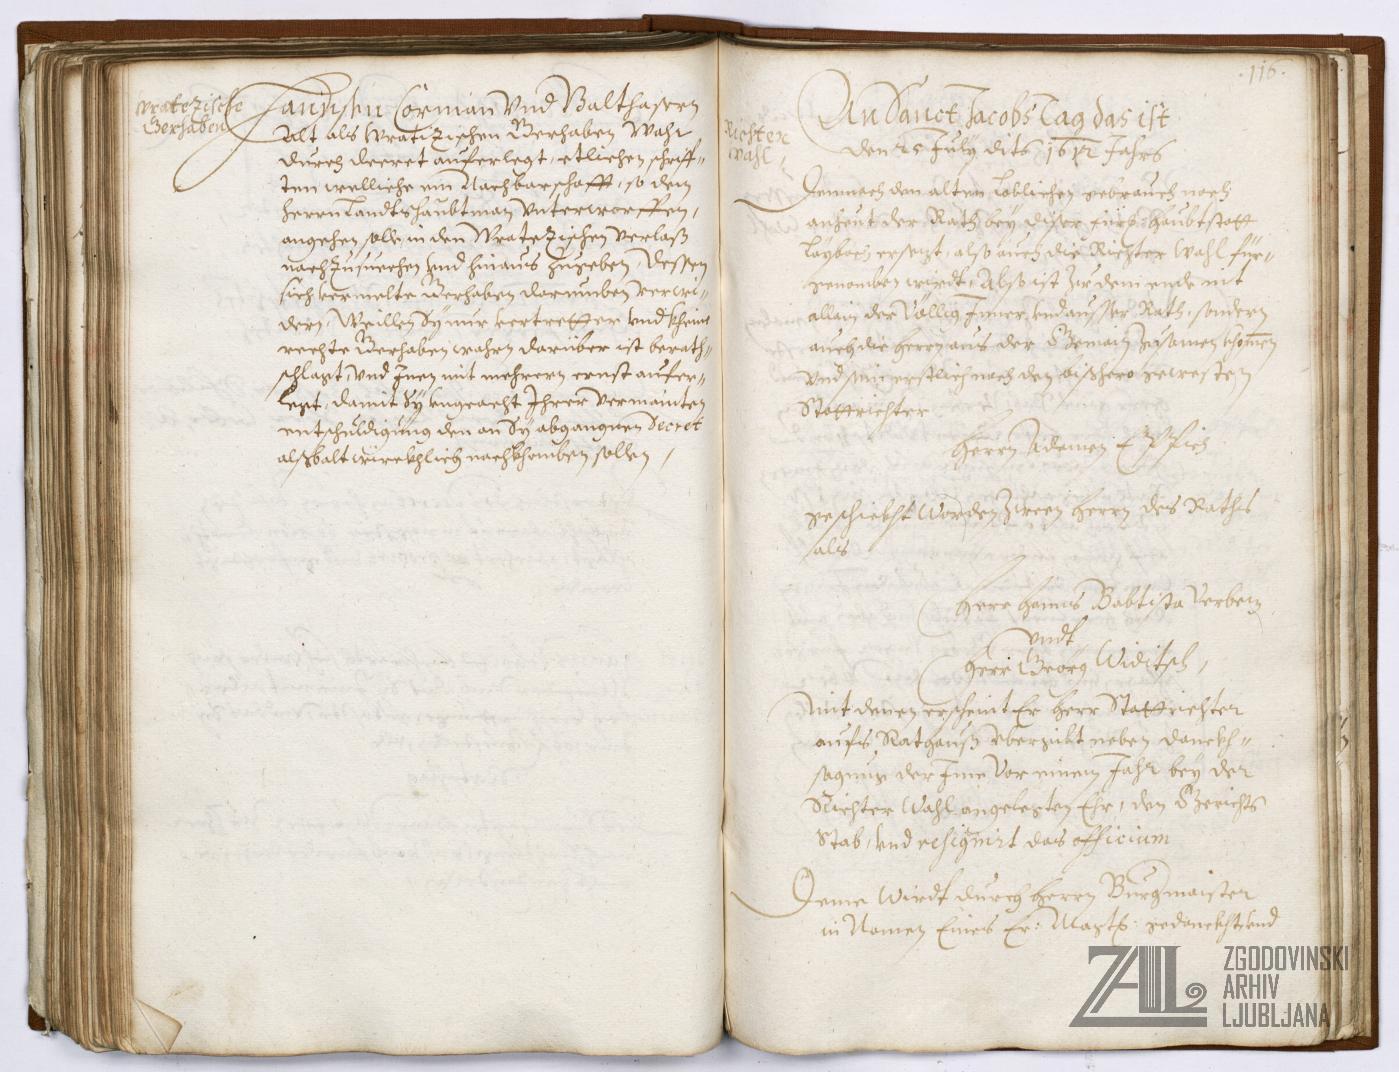 Wratezische
Gerhaben
Hannsen Corman Und Balthasern
Alt als Wratizischen Gerhaben wahr
durch decret auferlegt, etlichen schriff-
ten welliche ein Nachbarschafft, so dem
herrn Landtshaubtman Unterworffen,
angehen solle, in den Wratezischen Verlaß
nachzusuechen Und hinaus zugeben, dessen
sich vermelte Gerhaben darumben verwi-
dern, Weillen Sy nur vertretter Und kheine
rechte Gerhaben wahrn darüber ist berath-
schlagt, Und Inen mit mehrern ernst aufer-
legt, damit Sy Ungeacht Ihrer Vermainten
entschuldigung den an Sy abgangnen Decret
alßbalt würckhlich nachkhomben sollen,
.116.
Richter
Wahl,
An Sanct Jacobs Tag das ist
den 25 July dits Jahrs
Demnach dem alten löblichen gebrauch nach
anheut der Rath bey diser fürst: haubtstatt
Laybach ersezt, also auch die Richter Wahl für-
genomben wirdt, Also ist zu dem ende nit
allain der Völlig Inner Und ausser Rath, sondern
auch die herrn aus der Gemain zusamen khomen
Und sein erstlich nach den bißhero gewesten
Stattrichter
Herrn Adamen
geschickht worden zween herrn des Raths
als
Herr Hanns Babtista Verbetz
Undt
Herr Georg Widitsch,
Mit denen erscheint Er herr Stattrichter
aufs Rathhauß Ubergibt neben danckh-
sagung der Ime Vor einem Jahr bey der
Richter Wahl angelegten Ehr, den Gerichts
Stab, Und resignirt das officium
Deme Wirdt durch herrn Burgmaister
in Namen Eines Er: Magts: gedanckht Und
ZAL
ZGODOVINSKI
ARHIV
LJUBLJANA